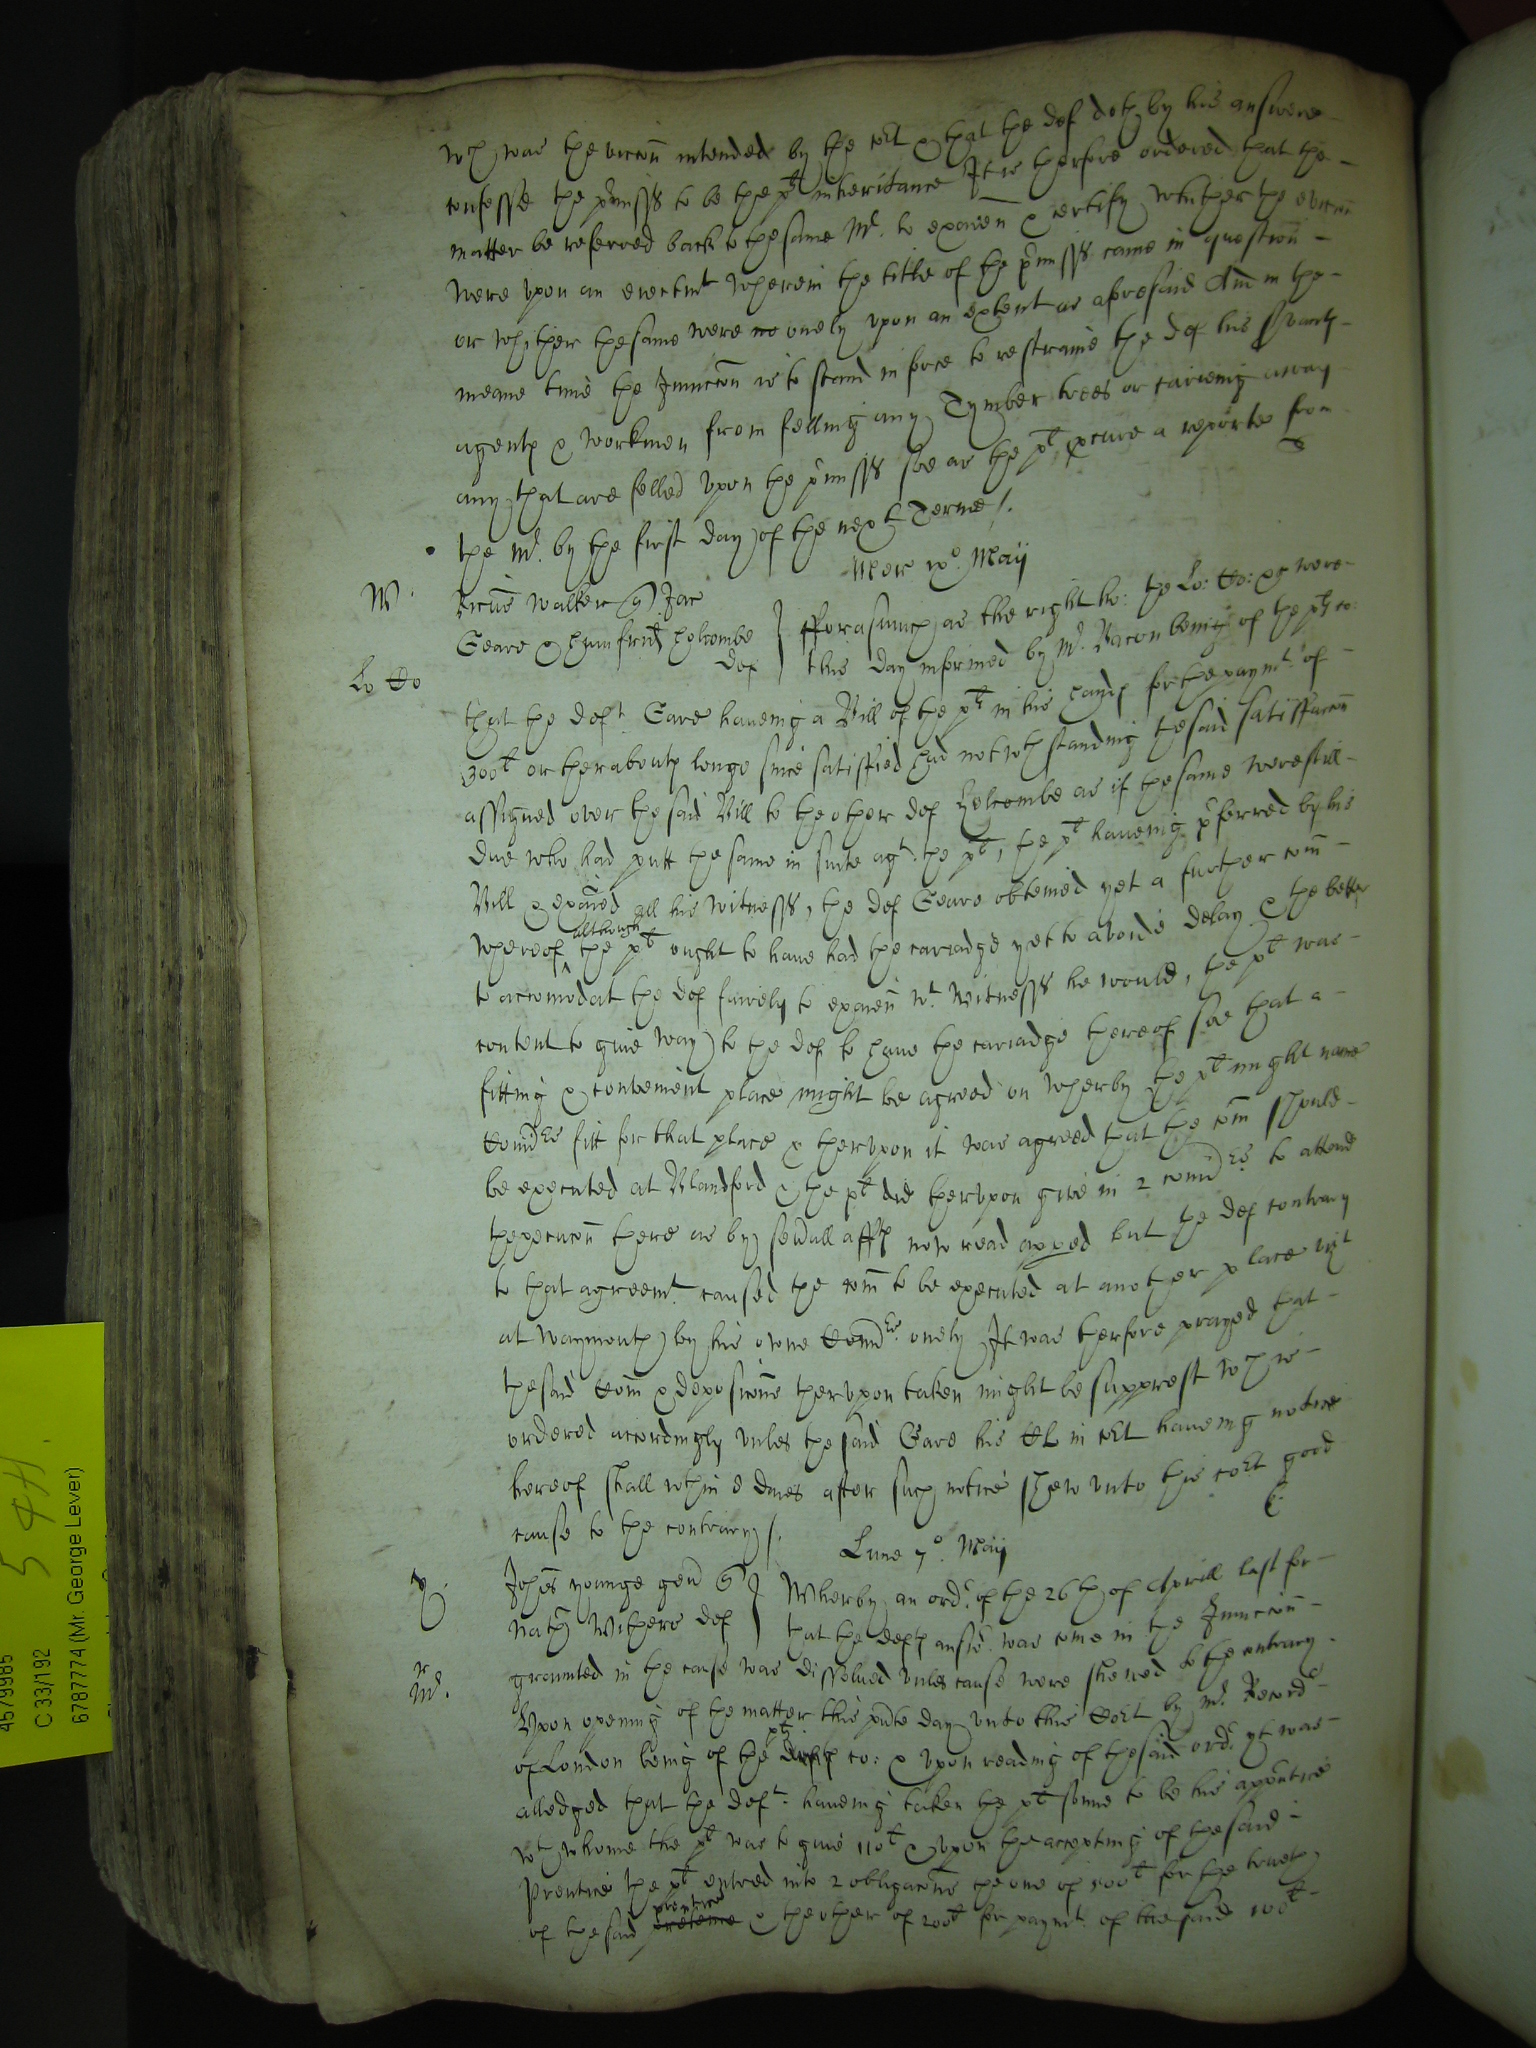 wch was the evicc̃on intended by the co:rt & that the def doth by his answere
confesse the p̃misss to be the plt inheritance It is therfore ordered that the
matter be referred back to the same Mr. to exam̃ & certify whither the evicc̃on
were vpon an eiectmt wherein the title of the p̃misss came in question
or whither the same were no onely vpon an extent as aforesaid And in the
meane time the Iniunccõn is to stand in force to restraine the def his servants
agents & workmen from felling any Tymber trees or carieing away
any that are felled vpon the p̃misss soe as the plt procure a reporte from
the Mr. by the first day of the next Terme /.
Mer ix° Maij
W.
Ricũs Walker Jac
Geare & Humfrid Holcombe def
fforasmuch as the right ho: the Lo: Co: &c were
this day informed by Mr. Bacon being of the plts co:
Lo Co
that the deft Geare haueing a Bill of the plt in his hands for the paymt. of
300l or therabouts longe since satisfied had notwthstanding the said satisfacc̃on
assigned over the said Bill to the other def Holcombe as if the same were still
due who had putt the same in suite agt. the plt, the plt haueing p̃ferred by his
Bill & exãied all his witnesss, the def Geare obteined yet a further com̃
whereof although the plt ought to haue had the cariadge yet to avoide delay & the better
to accomodat the def fairely to exam̃ wt. witnesss he would, the plt was
content to giue way to the def to haue the cariadge thereof soe that a
fitting & convenient place might be agreed on wherby the plt might name
Com̃rs fitt for that place & therupon it was agreed that the com̃ should
be executed at Blandford & the plt did therupon give in 2 com̃rs to attend
thexecuc̃on there as by sev̄all affts now read apped but the def contrary
to that agreemt. caused the com̃ to be executed at another place vizt
at Waymouth by his owne Com̃rs. onely It was therfore prayed that
the said Com̃ & deposic̃ons therupon taken might be supprest wch is
ordered accordingly vnles the said Geare his Cl in co:rt haueing notice
hereof shall wthin 8 daies after such notice shew vnto this co:rt good
cause to the contrary /.
Lune 7°. Maij
Y.
Johẽs younge gen̄
Nath̄ Withers def
Wherby an ordr. of the 26th of Aprill last for
that the defts answ̃ was come in the Iniunccõn
Mr.
graunted in the cause was dissolued vnles cause were shewed to the contrary.
Vpon opening of the matter this pñte day vnto this Co:rt by Mr. Recordr
of London being of the plts defts co: & vpon reading of the said ordr. yt was
alledged that the deft. haueing taken the plt sonne to be his apprentice
wth whome the plt was to giue 110l & vpon the accepting of the said
Prentice the plt entred into 2 obligac̃ons the one of 500l for the trueth
of the said prentice & the other of 200l for paymt. of the said 100l
4579985
C 33/192
6787774 (Mr. George Lever)